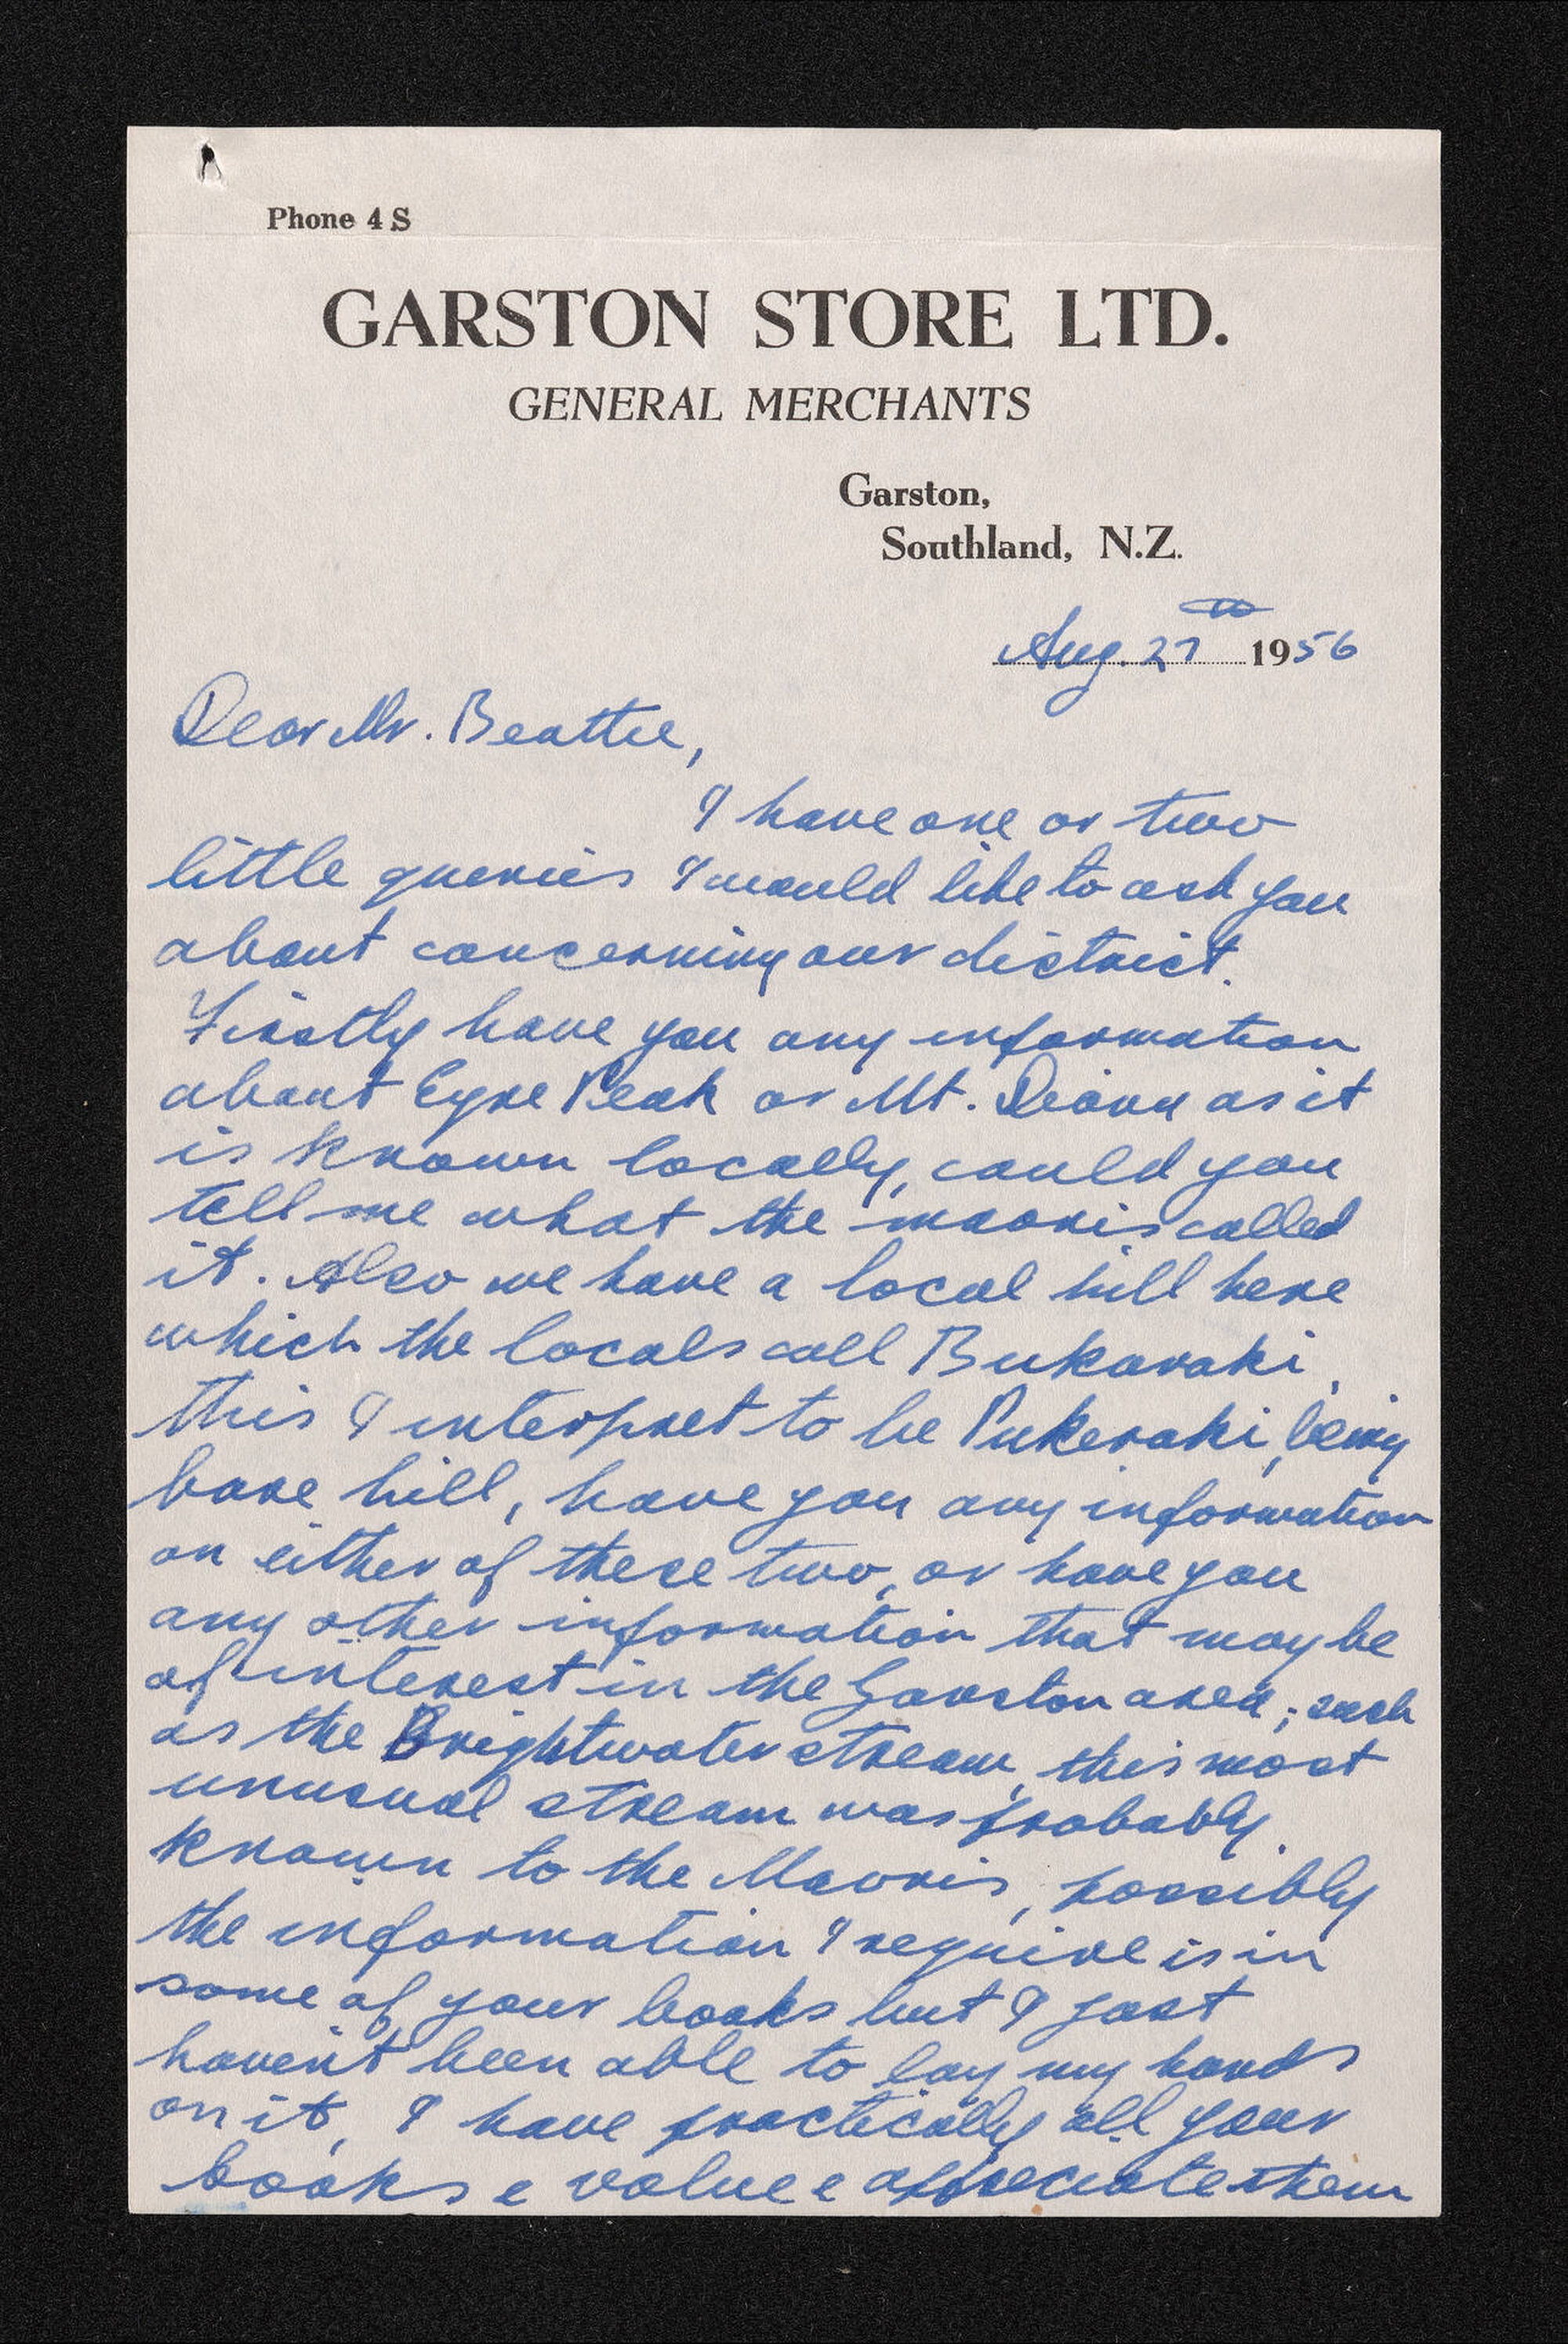 Phone 4 S
GARSTON STORE LTD.
GENERAL MERCHANTS
Garston,
Southland, N.Z.
Aug. 27th 1956
Dear Mr. Beattie,
I have one or two
little queries I would like to ask you
about concerning our district.
Firstly have you any information
about Eyre Peak or Mt. Diana as it
is known locally, could you
tell me what the maoris called
it. Also we have a local hill here
which the locals call Bukaraki,
this I interpret to be Pukeraki, being
bare hill, have you any information
on either of these two, or have you
any other information that may be
of interest in the Garston area; such
as the Brightwater stream, this most
unusual stream was probably
known to the Maoris, possibly
the information I require is in
some of your books but I just
haven't been able to lay my hands
on it, I have practically all your
books & value & appreciate them